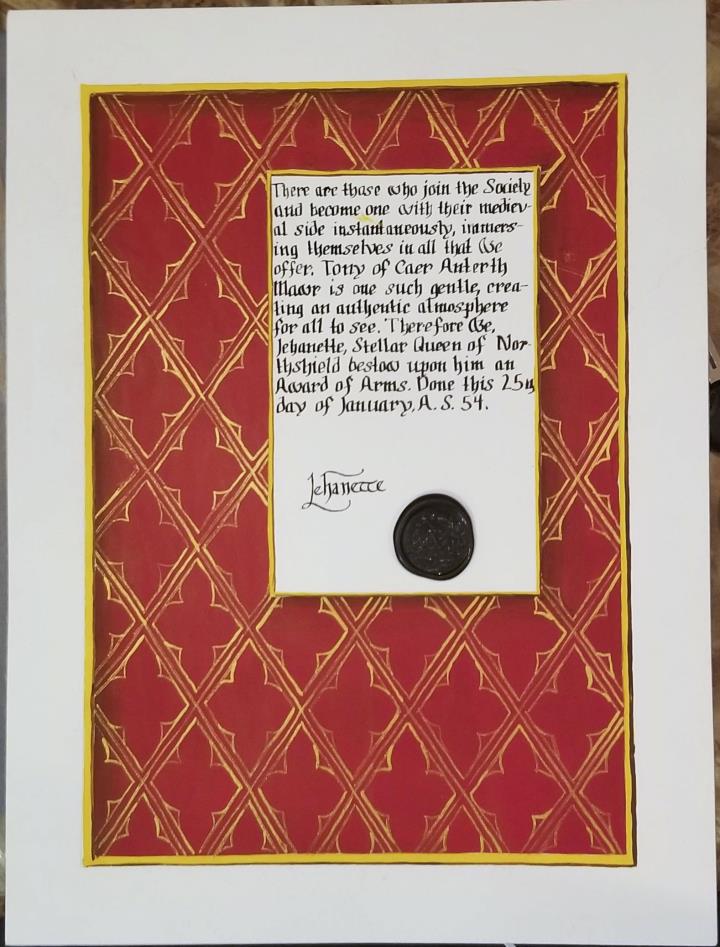 There are those who join the Society
and become one with their mediev-
al side instantaneously, immers-
ing themselves in all that We
offer. Tony of Caer Anterth
Mawr is one such gentle, crea-
ting an authentic atmosphere
for all to see. Therefore We,
Jehanette, Stellar Queen of Nor-
thshield bestow upon him an
Award of Arms. Done this 25th
day of January, A. S. 54.
Jehanette